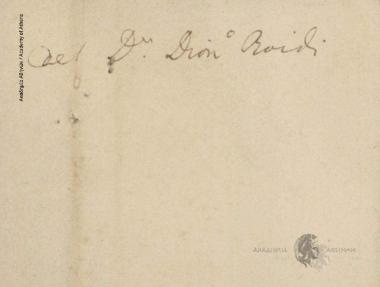 Del Dr. Dion.º Roidi
Ακαδημία Αθηνών / Academy of Athens
ΑΚΑΔΗΜΙΑ ΑΘΗΝΩΝ